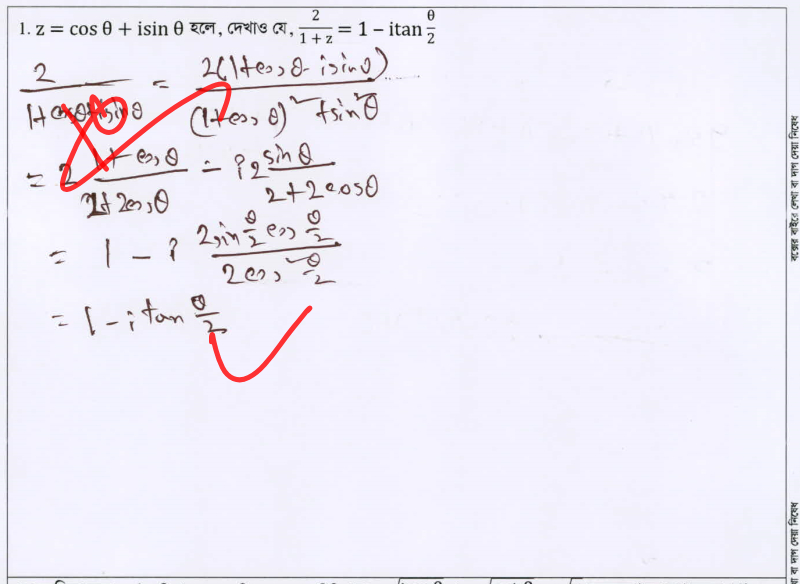 1. z = cos θ + isin θ হলে, দেখাও যে, 2/(1 + z) = 1 − itan θ/2
2/(1+cosθ+isinθ) = 2(1+cosθ - isinθ)/((1+cosθ)² + sin²θ)
= 2 (1+cosθ)/(2+2cosθ) - i2 sinθ/(2+2cosθ)
= 1 - i (2sin θ/2 cos θ/2)/(2cos² θ/2)
= 1 - i tan θ/2
বক্সের বাইরে লেখা বা দাগ দেয়া নিষেধ
বা দাগ দেয়া নিষেধ